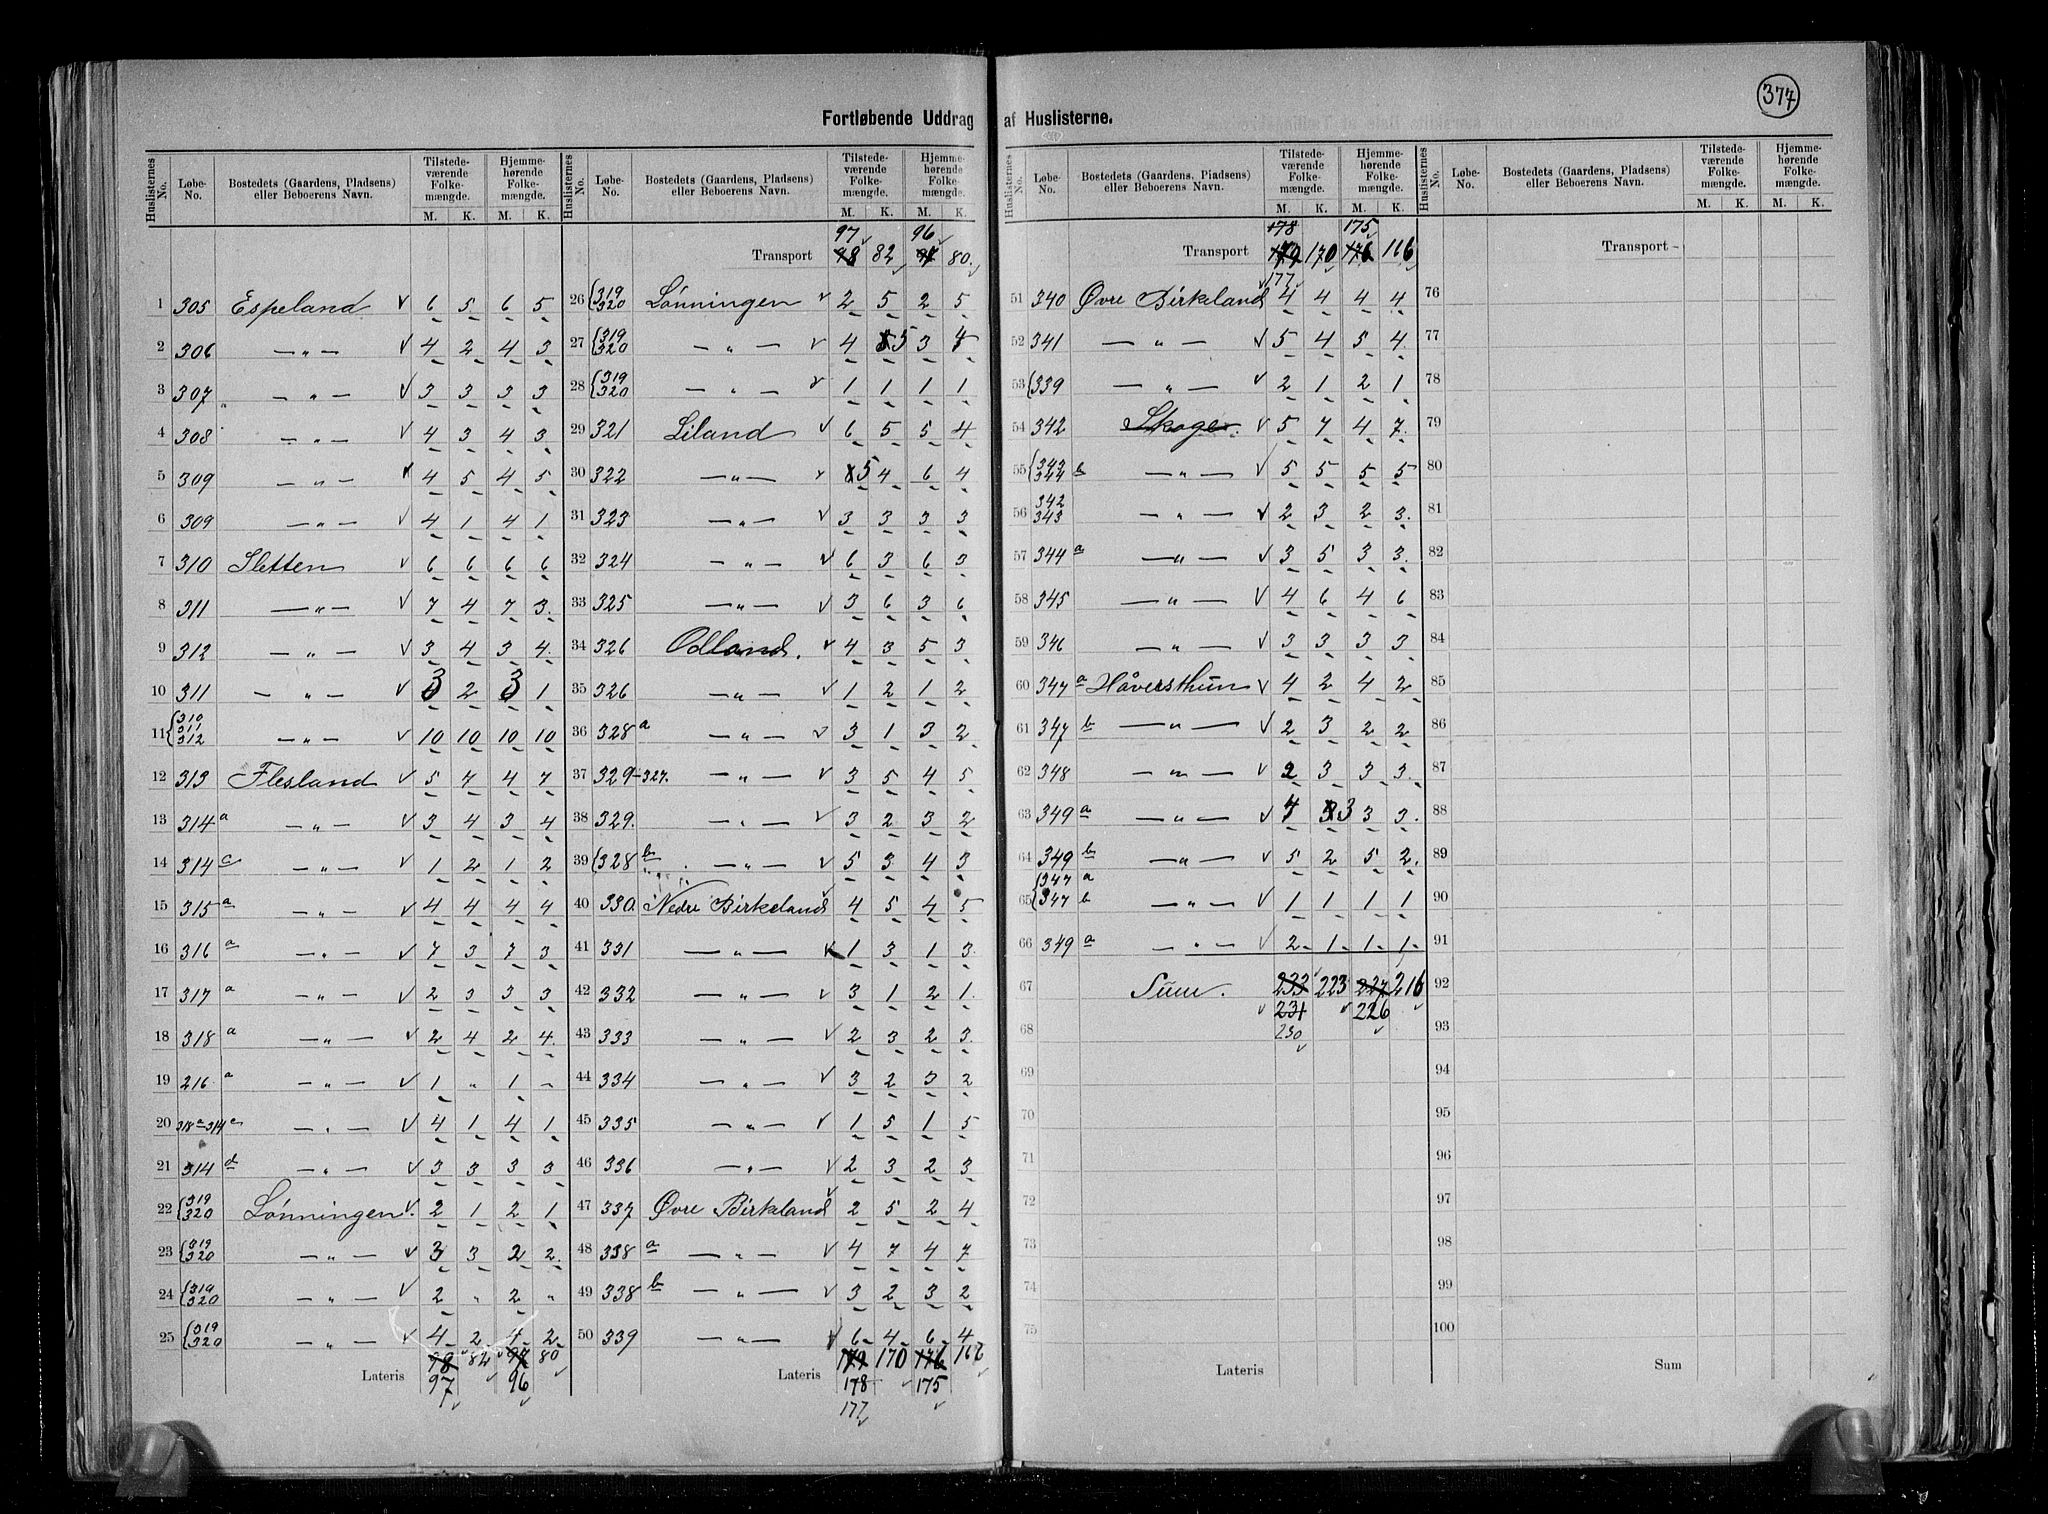 377
Fortløbende Uddrag af Huslisterne.
Huslisternes No. Løbe-No. Bostedets (Gaardens, Pladsens) eller Beboerens Navn. Tilstedeværende Folkemængde. M. K. Hjemmehørende Folkemængde. M. K.
1 305 Espeland √ 6 5 6 5
2 306 — „ — √ 4 2 4 3
3 307 — „ — √ 3 3 3 3
4 308 — „ — √ 4 3 4 3
5 309 — „ — √ 4 5 4 5
6 309 — „ — √ 4 1 4 1
7 310 Sletten √ 6 6 6 6
8 311 — „ — √ 7 4 7 3
9 312 — „ — √ 3 4 3 4
10 311 — „ — √ 3 2 3 1
11 {310 311 312 — „ — √ 10 10 10 10
12 313 Flesland √ 5 4 4 7
13 314 a — „ — √ 3 4 3 4
14 314 c — „ — √ 1 2 1 2
15 315 a — „ — √ 4 4 4 4
16 316 a — „ — √ 7 3 7 3
17 317 a — „ — √ 2 3 3 3
18 318 a — „ — √ 2 4 2 4
19 216 a — „ — √ 1 „ 1 –
20 318 a–314 e — „ — √ 4 1 4 1
21 314 d — „ — √ 3 3 3 3
22 {319 320 Lønningen √ 2 1 2 1
23 {319 320 — „ — √ 3 3 2 2
24 {319 320 — „ — √ 2 „ 2 „
25 {319 320 — „ — √ 4 2 4 2
Lateris 98 82 97 80
97 96
Huslisternes No. Løbe-No. Bostedets (Gaardens, Pladsens) eller Beboerens Navn. Tilstedeværende Folkemængde. M. K. Hjemmehørende Folkemængde. M. K.
97 96
Transport 98 82 97 80
26 {319 320 Lønningen √ 2 5 2 5
27 {319 320 — „ — √ 4 5 3 4
28 {319 320 — „ — √ 1 1 1 1
29 321 Liland √ 6 5 5 4
30 322 — „ — √ 5 4 6 4
31 323 — „ — √ 3 3 3 3
32 324 — „ — √ 6 3 6 3
33 325 — „ — √ 3 6 3 6
34 326 Odland. √ 4 3 5 3
35 326 — „ — √ 1 2 1 2
36 328 a — „ — √ 3 1 3 2
37 329–327. — „ — √ 3 5 4 5
38 329. — „ — √ 3 2 3 2
39 {328 b — „ — √ 5 3 4 3
40 330 Nedre Birkeland √ 4 5 4 5
41 331 — „ — √ 1 3 1 3
42 332 — „ — √ 3 1 2 1
43 333 — „ — √ 2 3 2 3
44 334 — „ — √ 3 2 3 2
45 335 — „ — √ 1 5 1 5
46 336 — „ — √ 2 3 2 3
47 337 Øvre Birkeland √ 2 5 2 4
48 338 a — „ — √ 4 7 4 7
49 338 b — „ — √ 3 2 3 2
50 339 — „ — √ 6 4 6 4
Lateris 179 170 176 166
178 175
177
Huslisternes No. Løbe-No. Bostedets (Gaardens, Pladsens) eller Beboerens Navn. Tilstedeværende Folkemængde. M. K. Hjemmehørende Folkemængde. M. K.
178 175
Transport 179 170 176 166
177
51 340 Øvre Birkeland 4 4 4 4
52 341 — „ — √ 5 4 5 4
53 {339 — „ — √ 2 1 2 1
54 342 Skage. √ 5 7 4 7
55 {343 344 b — „ — √ 5 5 5 5
56 342 343 — „ — √ 2 3 2 3
57 344 a — „ — √ 3 5 3 3
58 345 — „ — √ 4 6 4 6
59 346 — „ — √ 3 3 3 3
60 347 a Håversthun √ 4 2 4 2
61 347 b — „ — √ 2 3 2 2
62 348 — „ — 2 3 3 3
63 349 a — „ — √ 4 3 3 3
64 349 b — „ — √ 5 2 5 2
65 {347 a 347 b — „ — √ 1 1 1 1
66 349 a — „ — √ 2 1 1 1
67 Sum. 233 223 227 216
68 231 226
230
69
70
71
72
73
74
75
Lateris
Huslisternes No. Løbe-No. Bostedets (Gaardens, Pladsens) eller Beboerens Navn. Tilstedeværende Folkemængde. M. K. Hjemmehørende Folkemængde. M. K.
Transport
76
77
78
79
80
81
82
83
84
85
86
87
88
89
90
91
92
93
94
95
96
97
98
99
100
Sum